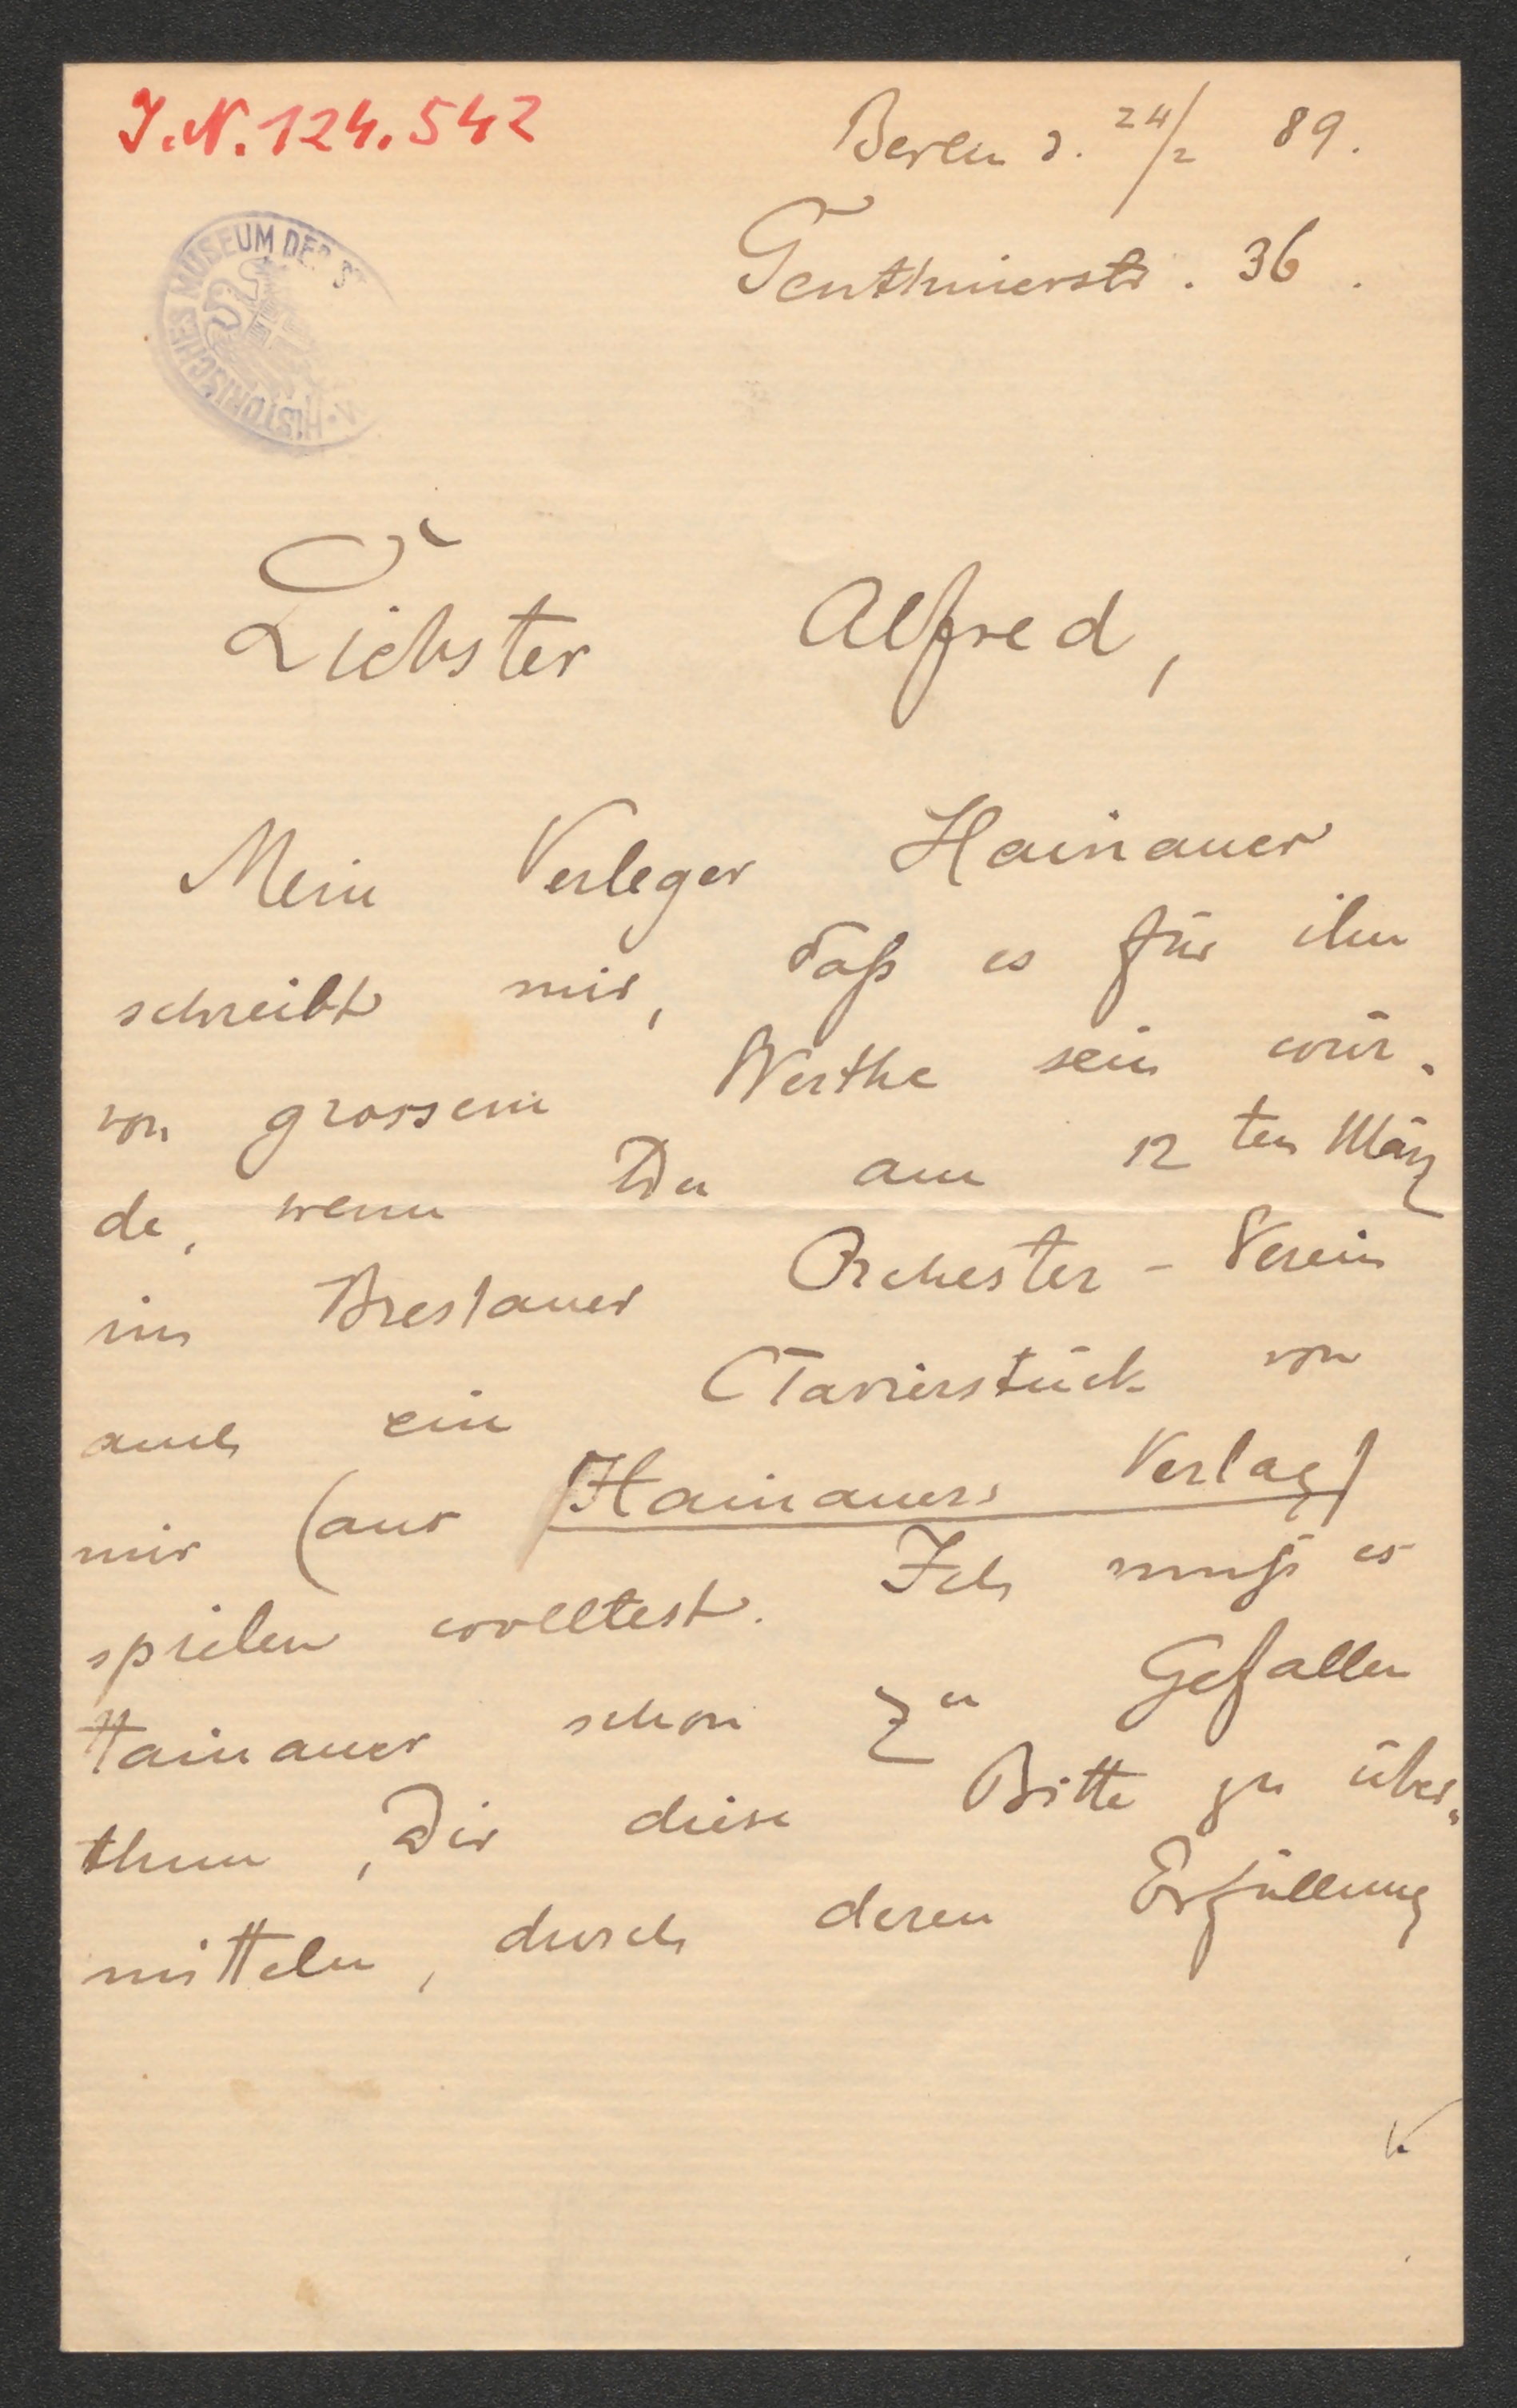 J.N. 124.542
Berlin d. 24/2 89.
HISTORISCHES MUSEUM DER ST
Genthinerstr. 36.
Liebster Alfred,
Mein Verleger Hainauer
schreibt mir, daß es für ihn
von grossem Werthe sein wür-
de, wenn Du am 12ten März
im Breslauer Orchester-Verein
auch ein Clavierstück von
mir (aus Hainauers Verlag)
spielen wolltest. Ich muß es
Hainauer schon zu Gefallen
thun, Dir diese Bitte zu über-
mitteln, durch deren Erfüllung